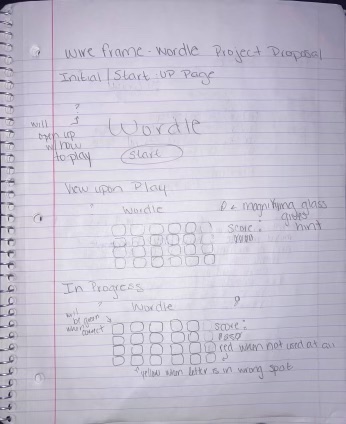 Wire frame - Wordle Project Proposal
Initial / Start UP Page
?
will open up w/ how to play
Wordle
Start
View upon Play
Wordle
= magnifying glass gives hint
score:
In Progress
?
Wordle
will be green when correct
score:
red when not used at all
yellow when letter is in wrong spot